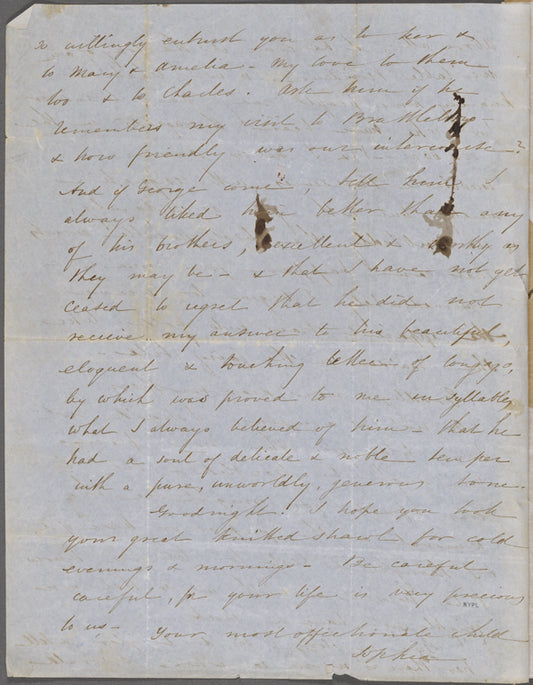 so willingly entrust you as to her &
to Mary & Amelia - My love to them
too & to Charles. Ask him if he
remembers my visit to Brattleboro -
& how friendly was our intercourse?
And if George come, tell him I
always liked him better than any
of his brothers, excellent & worthy as
they may be - & that I have not yet
ceased to regret that he did not
receive my answer to his beautiful,
eloquent & touching letter of long ago,
by which was proved to me in syllables,
what I always believed of him - that he
had a soul of delicate & noble temper
with a pure, unworldly, generous tone.
Goodnight. I hope you took
your great knitted shawl for cold
evenings & mornings - Be careful
careful, for your life is very precious
to us -
NYPL
Your most affectionate child
Sophia